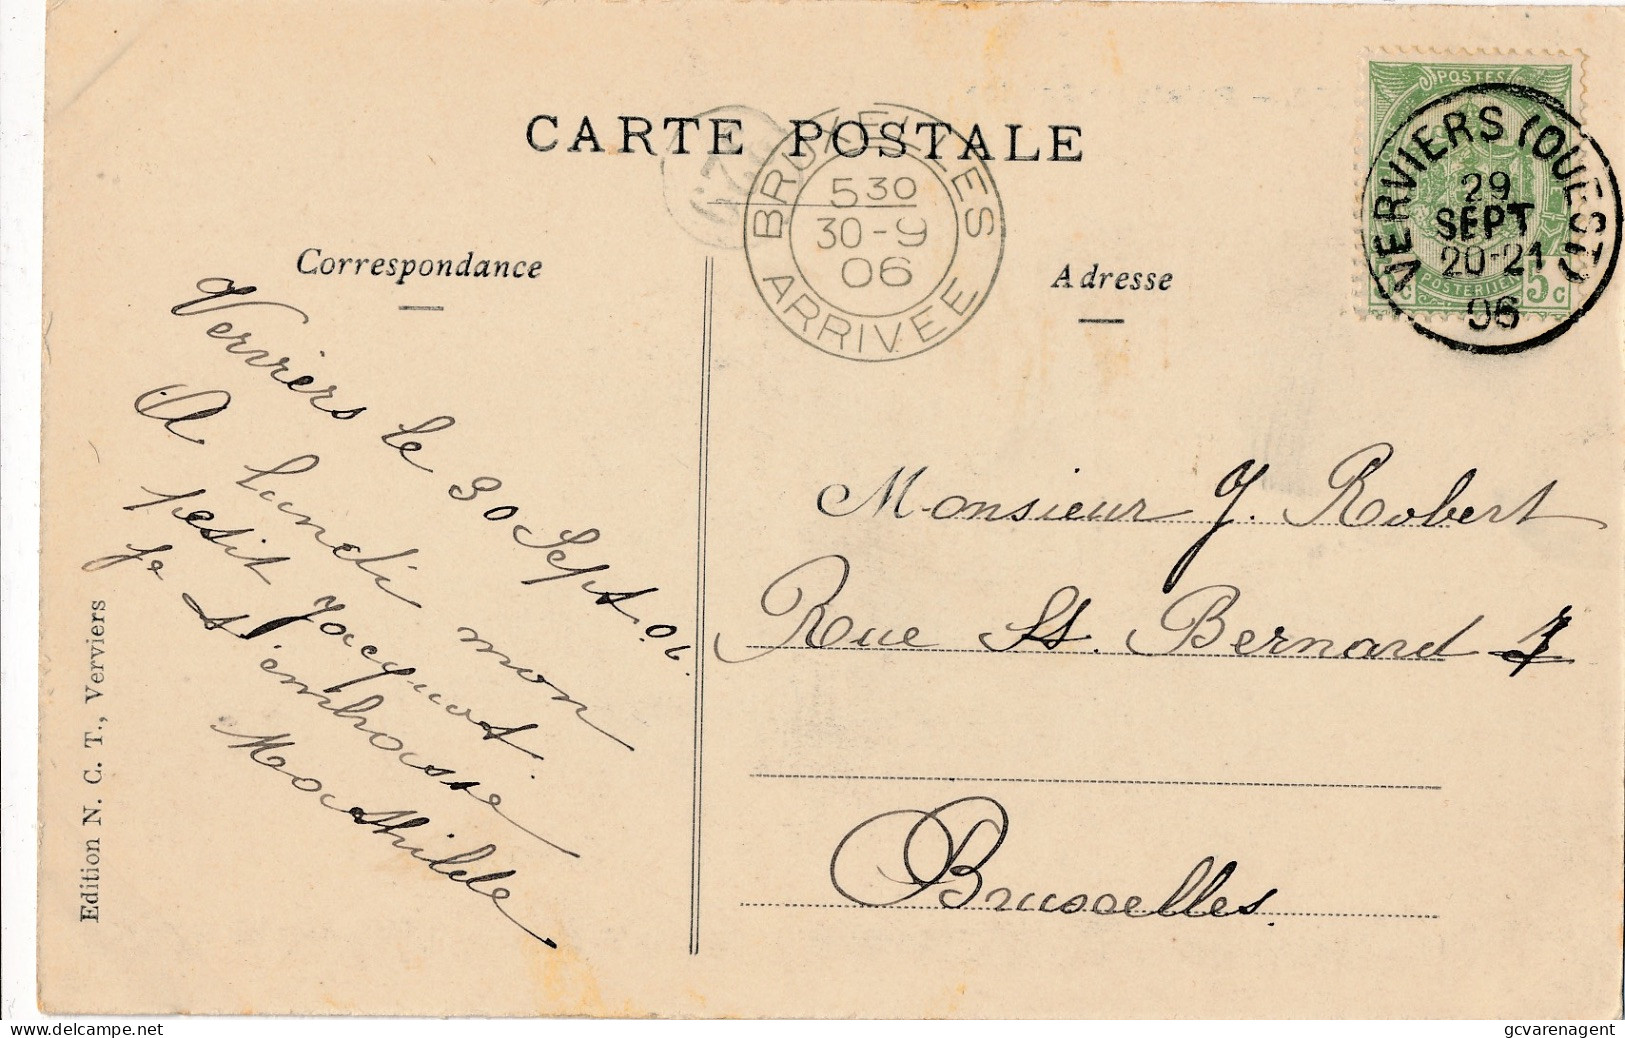 CARTE POSTALE
BRUXELLES
5 30
30-9
06
ARRIVEE
POSTES
POSTERIJEN
5 c
VERVIERS (OUEST)
29
SEPT
20-21
06
Correspondance
Adresse
Verviers le 30 Sept. 06.
A lundi mon
petit Jacquot.
Je t'embrasse
Mathilde
Monsieur J. Robert
Rue St. Bernard 7
Bruxelles.
Edition N. C. T., Verviers
gcvarenagent